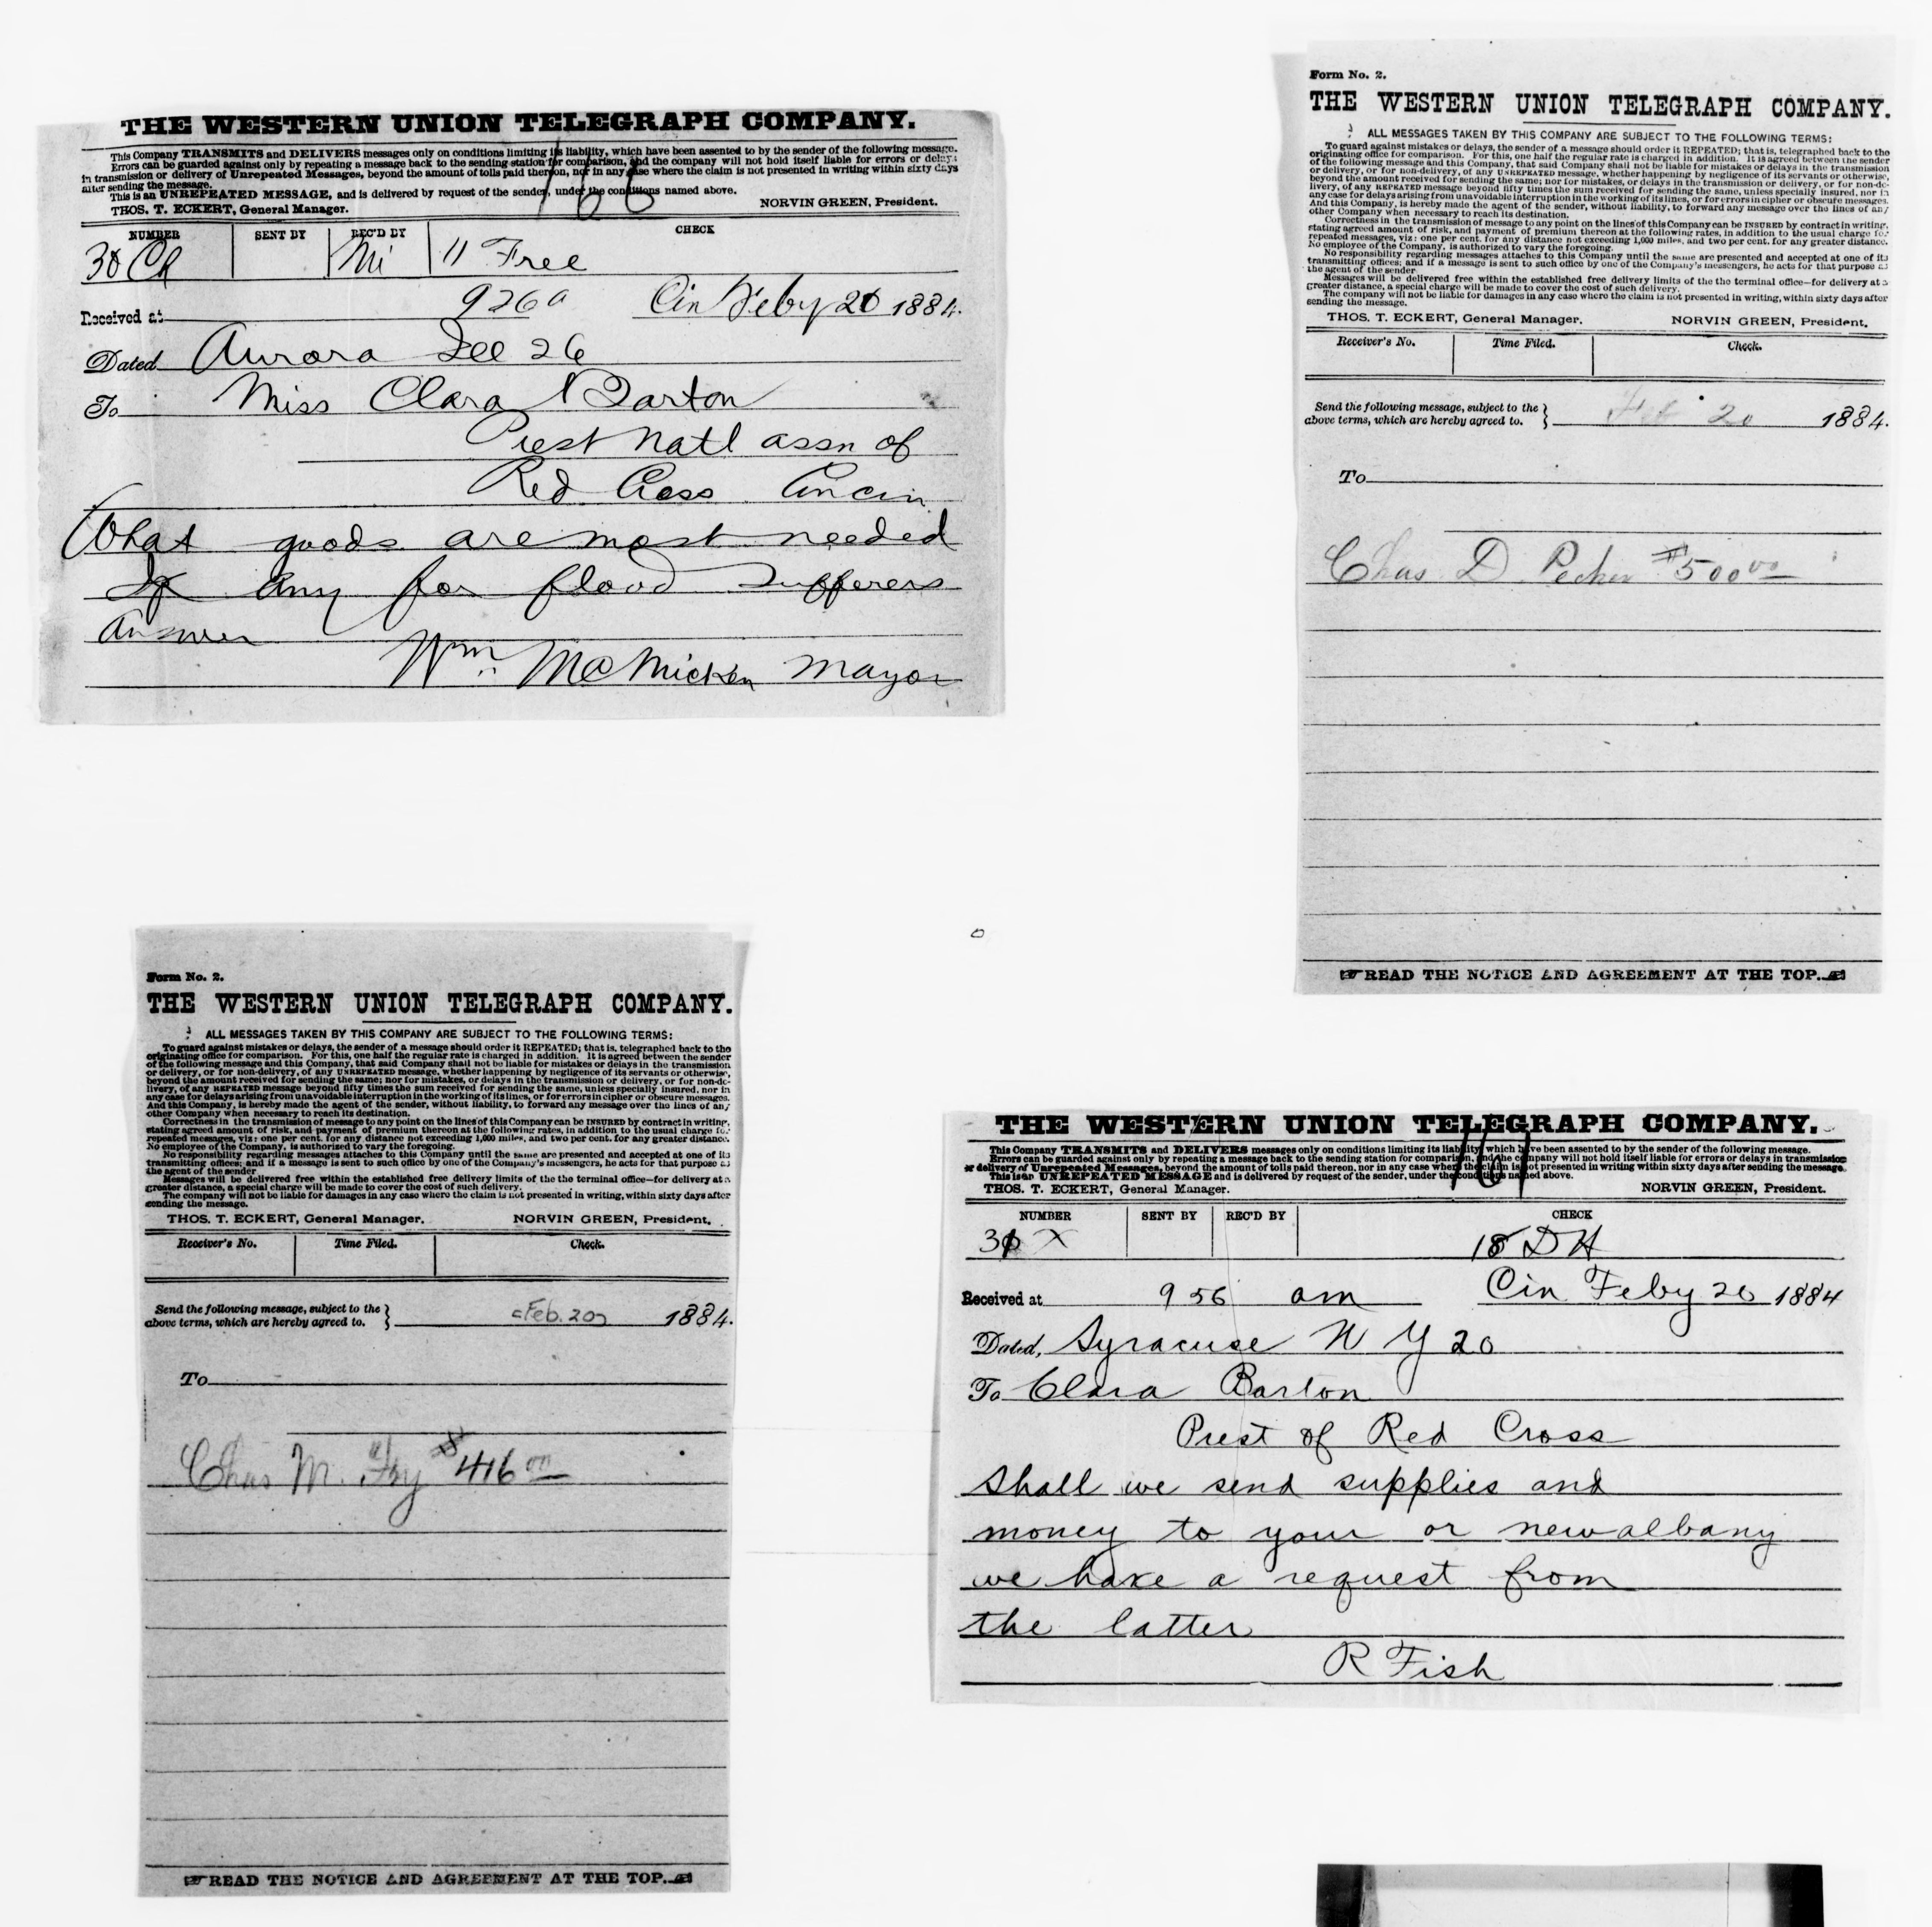 THE WESTERN UNION TELEGRAPH COMPANY.
This Company TRANSMITS and DELIVERS messages only on conditions limiting its liability, which have been assented to by the sender of the following message.
Errors can be guarded against only by repeating a message back to the sending station for comparison, and the company will not hold itself liable for errors or delays
in transmission or delivery of Unrepeated Messages, beyond the amount of tolls paid thereon, nor in any case where the claim is not presented in writing within sixty days
after sending the message.
This is an UNREPEATED MESSAGE, and is delivered by request of the sender, under the conditions named above.
166
THOS. T. ECKERT, General Manager. NORVIN GREEN, President.
NUMBER SENT BY REC'D BY CHECK
30 Ch Mi 11 Free
Received at 926a Cin Feby 20 1884.
Dated Aurora 26
To Miss Clara Barton
Prest Natl assn of
Red Cross Cincin
What goods are most needed
If any for flood sufferers
answer
Wm McMicken Mayor
Form No. 2.
THE WESTERN UNION TELEGRAPH COMPANY.
ALL MESSAGES TAKEN BY THIS COMPANY ARE SUBJECT TO THE FOLLOWING TERMS:
To guard against mistakes or delays, the sender of a message should order it REPEATED; that is, telegraphed back to the
originating office for comparison. For this, one half the regular rate is charged in addition. It is agreed between the sender
of the following message and this Company, that said Company shall not be liable for mistakes or delays in the transmission
or delivery, or for non-delivery, of any UNREPEATED message, whether happening by negligence of its servants or otherwise,
beyond the amount received for sending the same; nor for mistakes, or delays in the transmission or delivery, or for non-de-
livery, of any REPEATED message beyond fifty times the sum received for sending the same, unless specially insured, nor in
any case for delays arising from unavoidable interruption in the working of its lines, or for errors in cipher or obscure messages.
And this Company, is hereby made the agent of the sender, without liability, to forward any message over the lines of any
other Company when necessary to reach its destination.
Correctness in the transmission of message to any point on the lines of this Company can be INSURED by contract in writing,
stating agreed amount of risk, and payment of premium thereon at the following rates, in addition to the usual charge for
repeated messages, viz: one per cent. for any distance not exceeding 1,000 miles, and two per cent. for any greater distance.
No employee of the Company, is authorized to vary the foregoing.
No responsibility regarding messages attaches to this Company until the same are presented and accepted at one of its
transmitting offices; and if a message is sent to such office by one of the Company's messengers, he acts for that purpose as
the agent of the sender
Messages will be delivered free within the established free delivery limits of the the terminal office—for delivery at a
greater distance, a special charge will be made to cover the cost of such delivery.
The company will not be liable for damages in any case where the claim is not presented in writing, within sixty days after
sending the message.
THOS. T. ECKERT, General Manager. NORVIN GREEN, President.
Receiver's No. Time Filed. Check.
Send the following message, subject to the
above terms, which are hereby agreed to. Feb 20 1884.
To
Chas D. $500 00
READ THE NOTICE AND AGREEMENT AT THE TOP.
Form No. 2.
THE WESTERN UNION TELEGRAPH COMPANY.
ALL MESSAGES TAKEN BY THIS COMPANY ARE SUBJECT TO THE FOLLOWING TERMS:
To guard against mistakes or delays, the sender of a message should order it REPEATED; that is, telegraphed back to the
originating office for comparison. For this, one half the regular rate is charged in addition. It is agreed between the sender
of the following message and this Company, that said Company shall not be liable for mistakes or delays in the transmission
or delivery, or for non-delivery, of any UNREPEATED message, whether happening by negligence of its servants or otherwise,
beyond the amount received for sending the same; nor for mistakes, or delays in the transmission or delivery, or for non-de-
livery, of any REPEATED message beyond fifty times the sum received for sending the same, unless specially insured, nor in
any case for delays arising from unavoidable interruption in the working of its lines, or for errors in cipher or obscure messages.
And this Company, is hereby made the agent of the sender, without liability, to forward any message over the lines of any
other Company when necessary to reach its destination.
Correctness in the transmission of message to any point on the lines of this Company can be INSURED by contract in writing,
stating agreed amount of risk, and payment of premium thereon at the following rates, in addition to the usual charge for
repeated messages, viz: one per cent. for any distance not exceeding 1,000 miles, and two per cent. for any greater distance.
No employee of the Company, is authorized to vary the foregoing.
No responsibility regarding messages attaches to this Company until the same are presented and accepted at one of its
transmitting offices; and if a message is sent to such office by one of the Company's messengers, he acts for that purpose as
the agent of the sender
Messages will be delivered free within the established free delivery limits of the the terminal office—for delivery at a
greater distance, a special charge will be made to cover the cost of such delivery.
The company will not be liable for damages in any case where the claim is not presented in writing, within sixty days after
sending the message.
THOS. T. ECKERT, General Manager. NORVIN GREEN, President.
Receiver's No. Time Filed. Check.
Send the following message, subject to the
above terms, which are hereby agreed to. Feb. 20 1884.
To
Chas M. $416 00
READ THE NOTICE AND AGREEMENT AT THE TOP.
THE WESTERN UNION TELEGRAPH COMPANY.
This Company TRANSMITS and DELIVERS messages only on conditions limiting its liability, which have been assented to by the sender of the following message.
Errors can be guarded against only by repeating a message back to the sending station for comparison, and the company will not hold itself liable for errors or delays in transmission
or delivery of Unrepeated Messages, beyond the amount of tolls paid thereon, nor in any case where the claim is not presented in writing within sixty days after sending the message.
This is an UNREPEATED MESSAGE and is delivered by request of the sender, under the conditions named above.
161
THOS. T. ECKERT, General Manager. NORVIN GREEN, President.
NUMBER SENT BY REC'D BY CHECK
X 18 DH
Received at 9 56 am Cin Feby 20 1884
Dated, Syracuse N Y 20
To Clara Barton
Prest of Red Cross
Shall we send supplies and
money to your or newalbany
we have a request from
the latter
R Fish